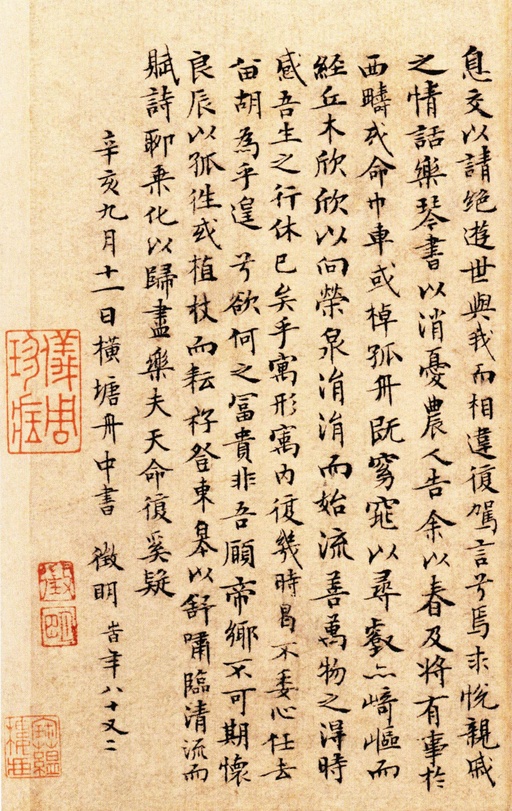 息交以請絕遊世與我而相違復駕言兮焉求悅親戚
之情話樂琴書以消憂農人告余以春及將有事於
西疇或命巾車或棹孤舟既窈窕以尋壑亦崎嶇而
經丘木欣欣以向榮泉涓涓而始流善萬物之得時
感吾生之行休已矣乎寓形寓內復幾時曷不委心任去
留胡為乎遑兮欲何之富貴非吾願帝鄉不可期懷
良辰以孤往或植杖而耘耔登東皋以舒嘯臨清流而
賦詩聊乘化以歸盡樂夫天命復奚疑
辛亥九月十一日橫塘舟中書 徵明 旹年八十又二
儀周珍藏
徵明